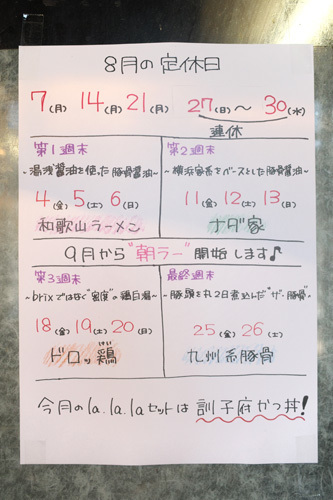 8月の定休日
7(月) 14(月) 21(月) 27(日)〜30(水)
連休
第1週末
~湯浅醤油を使った豚骨醤油~
4(金) 5(土) 6(日)
和歌山ラーメン
第2週末
~横浜家系をベースとした豚骨醤油~
11(金) 12(土) 13(日)
ナダ家
9月から"朝ラー"開始します♪
第3週末
~brixではなく"密度"の鶏白湯~
18(金) 19(土) 20(日)
ドロッ鶏
最終週末
~豚頭を丸2日煮込んだ"ザ・豚骨"~
25(金) 26(土)
九州系豚骨
今月のla.la.laセットは訓子府かつ丼!